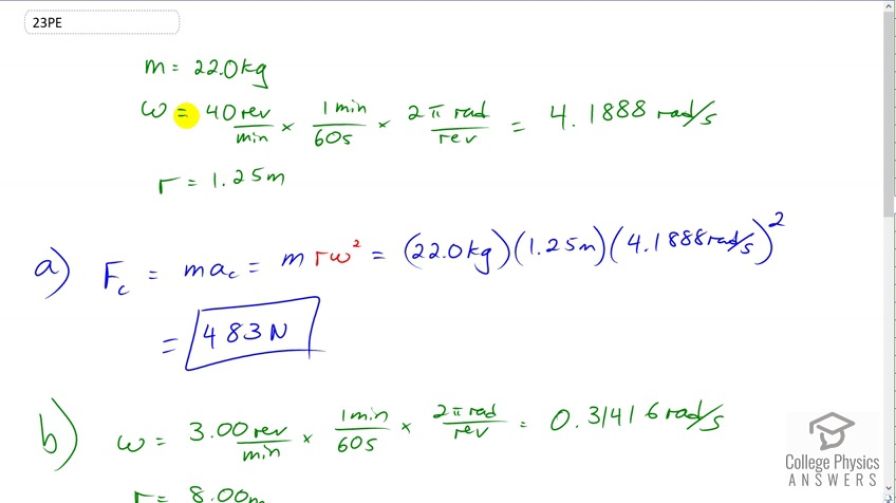 23PE
m = 22.0 kg
ω = 40 rev/min × 1 min/60s × 2π rad/rev = 4.1888 rad/s
r = 1.25m
a) Fc = mac = m rω² = (22.0 kg)(1.25m)(4.1888 rad/s)²
= 483 N
b) ω = 3.00 rev/min × 1 min/60s × 2π rad/rev = 0.31416 rad/s
r = 8.00m
College Physics
ANSWERS